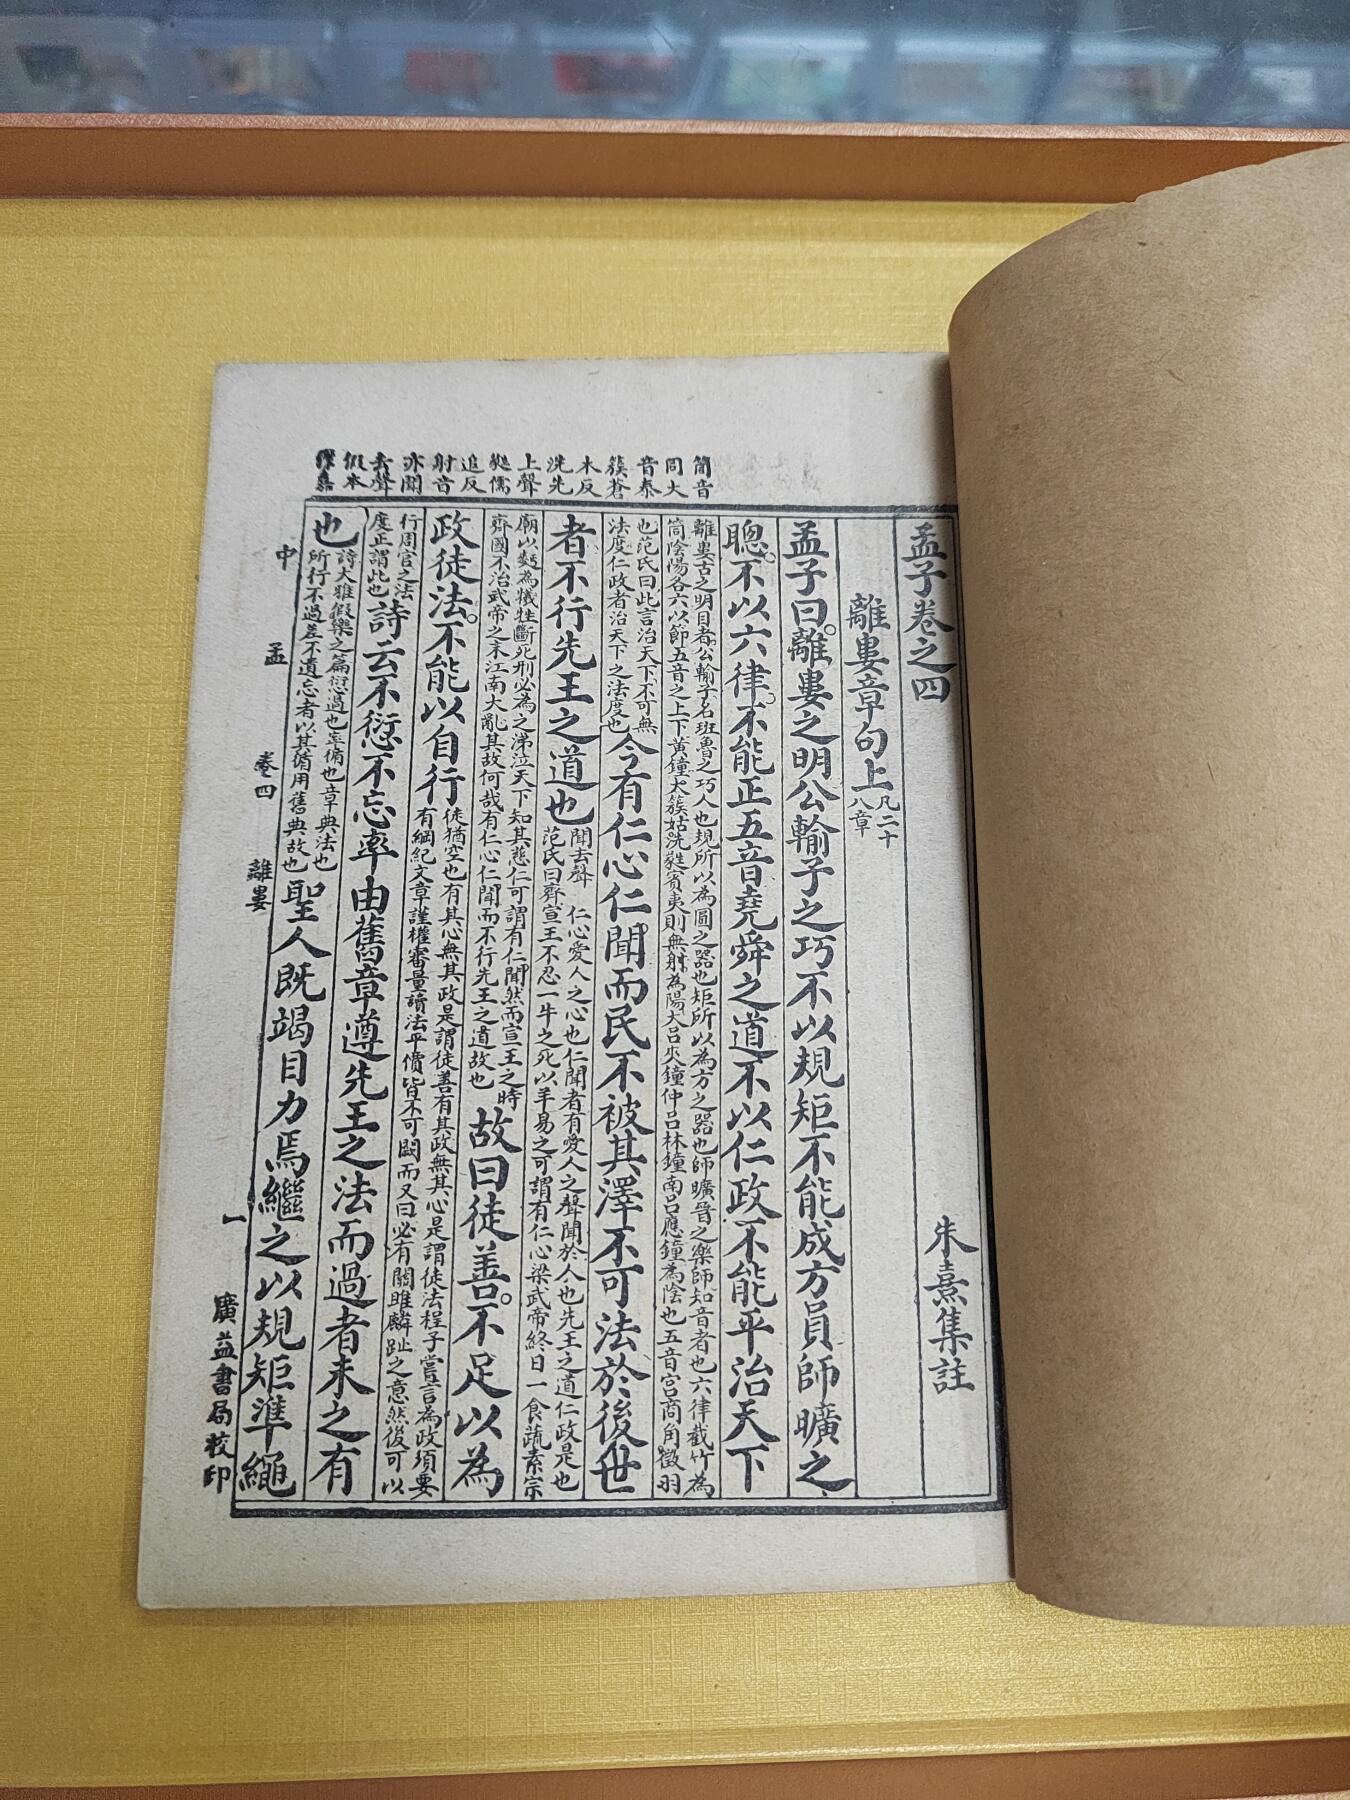 簡音
同大
音泰
簇蒼
木反
洗先
上聲
㽔儒
追反
射音
亦聞
去聲
假本
孟子卷之四
朱熹集註
離婁章句上凡二十八章
孟子曰離婁之明公輸子之巧不以規矩不能成方員師曠之
聰不以六律不能正五音堯舜之道不以仁政不能平治天下
離婁古之明目者公輸子名班魯之巧人也規所以為圓之器也矩所以為方之器也師曠晉之樂師知音者也六律截竹為
筒陰陽各六以節五音之上下黃鐘大簇姑洗蕤賓夷則無射為陽大呂夾鐘仲呂林鐘南呂應鐘為陰也五音宮商角徵羽
也范氏曰此言治天下不可無
法度仁政者治天下之法度也
今有仁心仁聞而民不被其澤不可法於後世
者不行先王之道也
聞去聲 仁心愛人之心也仁聞者有愛人之聲聞於人也先王之道仁政是也
范氏曰齊宣王不忍一牛之死以羊易之可謂有仁心梁武帝終日一食蔬素宗
廟以麪為犧牲斷死刑必為之涕泣天下知其慈仁可謂有仁聞然而宣王之時
齊國不治武帝之末江南大亂其故何哉有仁心仁聞而不行先王之道故也
故曰徒善不足以為
政徒法不能以自行
徒猶空也有其心無其政是謂徒善有其政無其心是謂徒法程子嘗言為政須要
有綱紀文章謹權審量讀法平價皆不可闕而又曰必有關雎麟趾之意然後可以
行周官之法
度正謂此也
詩云不愆不忘率由舊章遵先王之法而過者未之有
也
詩大雅假樂之篇愆過也率循也章典法也
所行不過差不遺忘者以其循用舊典故也
聖人既竭目力焉繼之以規矩準繩
中 孟 卷四 離婁 一 廣益書局校印